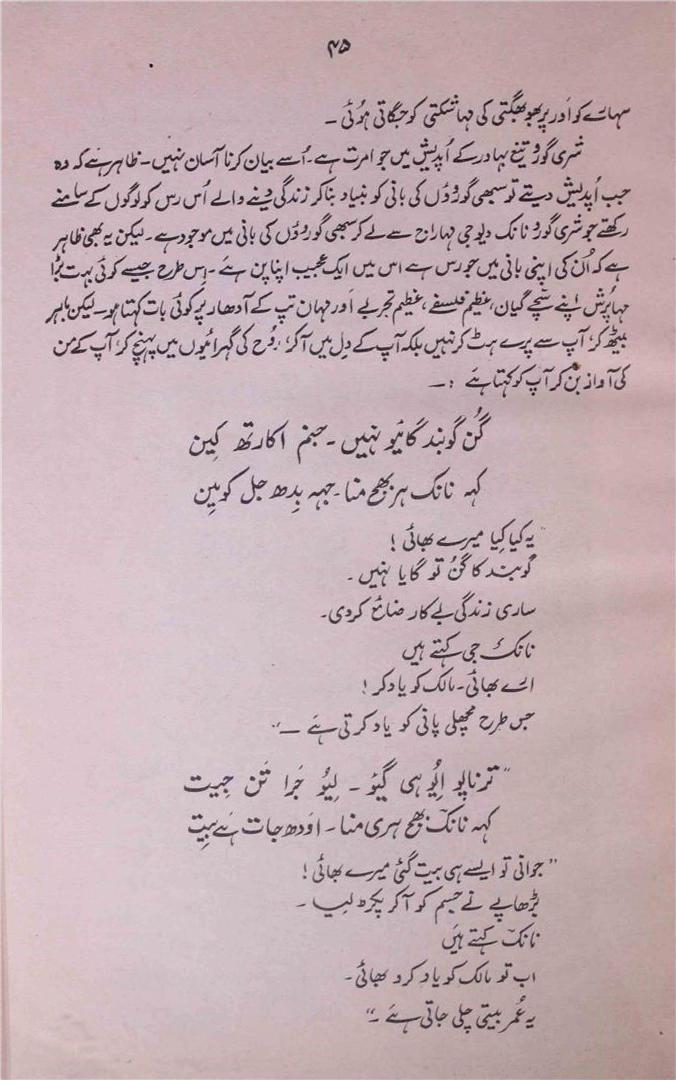 ۴۵
سہارے کو اَدر پربھو بھگتی کی مہا شکتی کو جگاتی ہُوئی ۔
شری گورو تیغ بہادر کے اُپدیش میں جو امرت ہے ۔ اُسے بیان کرنا آسان نہیں ۔ ظاہر ہے کہ وہ
جب اُپدیش دیتے تو سبھی گوروؤں کی بانی کو بنیاد بنا کر زندگی دینے والے اُس رس کو لوگوں کے سامنے
رکھتے جو شری گورو نانک دیو جی مہاراج سے لے کر سبھی گوروؤں کی بانی میں موجود ہے ۔ لیکن یہ بھی ظاہر
ہے کہ اُن کی اپنی بانی میں جو رس ہے اس میں ایک عجیب اپنا پن ہے ۔ اِس طرح جیسے کوئی بہت بڑا
مہاپُرش اپنے سچے گیان، عظیم فلسفے، عظیم تجربے اَور مہان تپ کے آدھار پر کوئی بات کہتا ہو ۔ لیکن باہر
بیٹھ کر، آپ سے پرے ہٹ کر نہیں بلکہ آپ کے دِل میں آ کر، رُوح کی گہرائیوں میں پہنچ کر، آپ کے من
کی آواز بن کر آپ کو کہتا ہے :۔
گُن گوبند گائیو نہیں ۔ جنم اکارتھ کین
کہہ نانک ہر بھج منا ۔ جہہ بِدھ جل کو مِین
"یہ کیا کِیا میرے بھائی !
گوبند کا گُن تو گایا نہیں ۔
ساری زندگی بے کار ضائع کر دی۔
نانک جی کہتے ہیں
اے بھائی ۔ مالک کو یاد کر !
جس طرح مچھلی پانی کو یاد کرتی ہَے ۔"
"ترناپو اِیُو ہی گیئو ۔ لِیُو جَرا تَن جِیت
کہہ نانک بھج ہری منا ۔ اَودھ جات ہَے بِیت
"جوانی تو ایسے ہی بیت گئی میرے بھائی !
بُڑھاپے نے جسم کو آ کر پکڑ لیا ۔
نانک کہتے ہیں
اب تو مالک کو یاد کرو بھائی ۔
یہ عُمر بیتی چلی جاتی ہَے ۔"